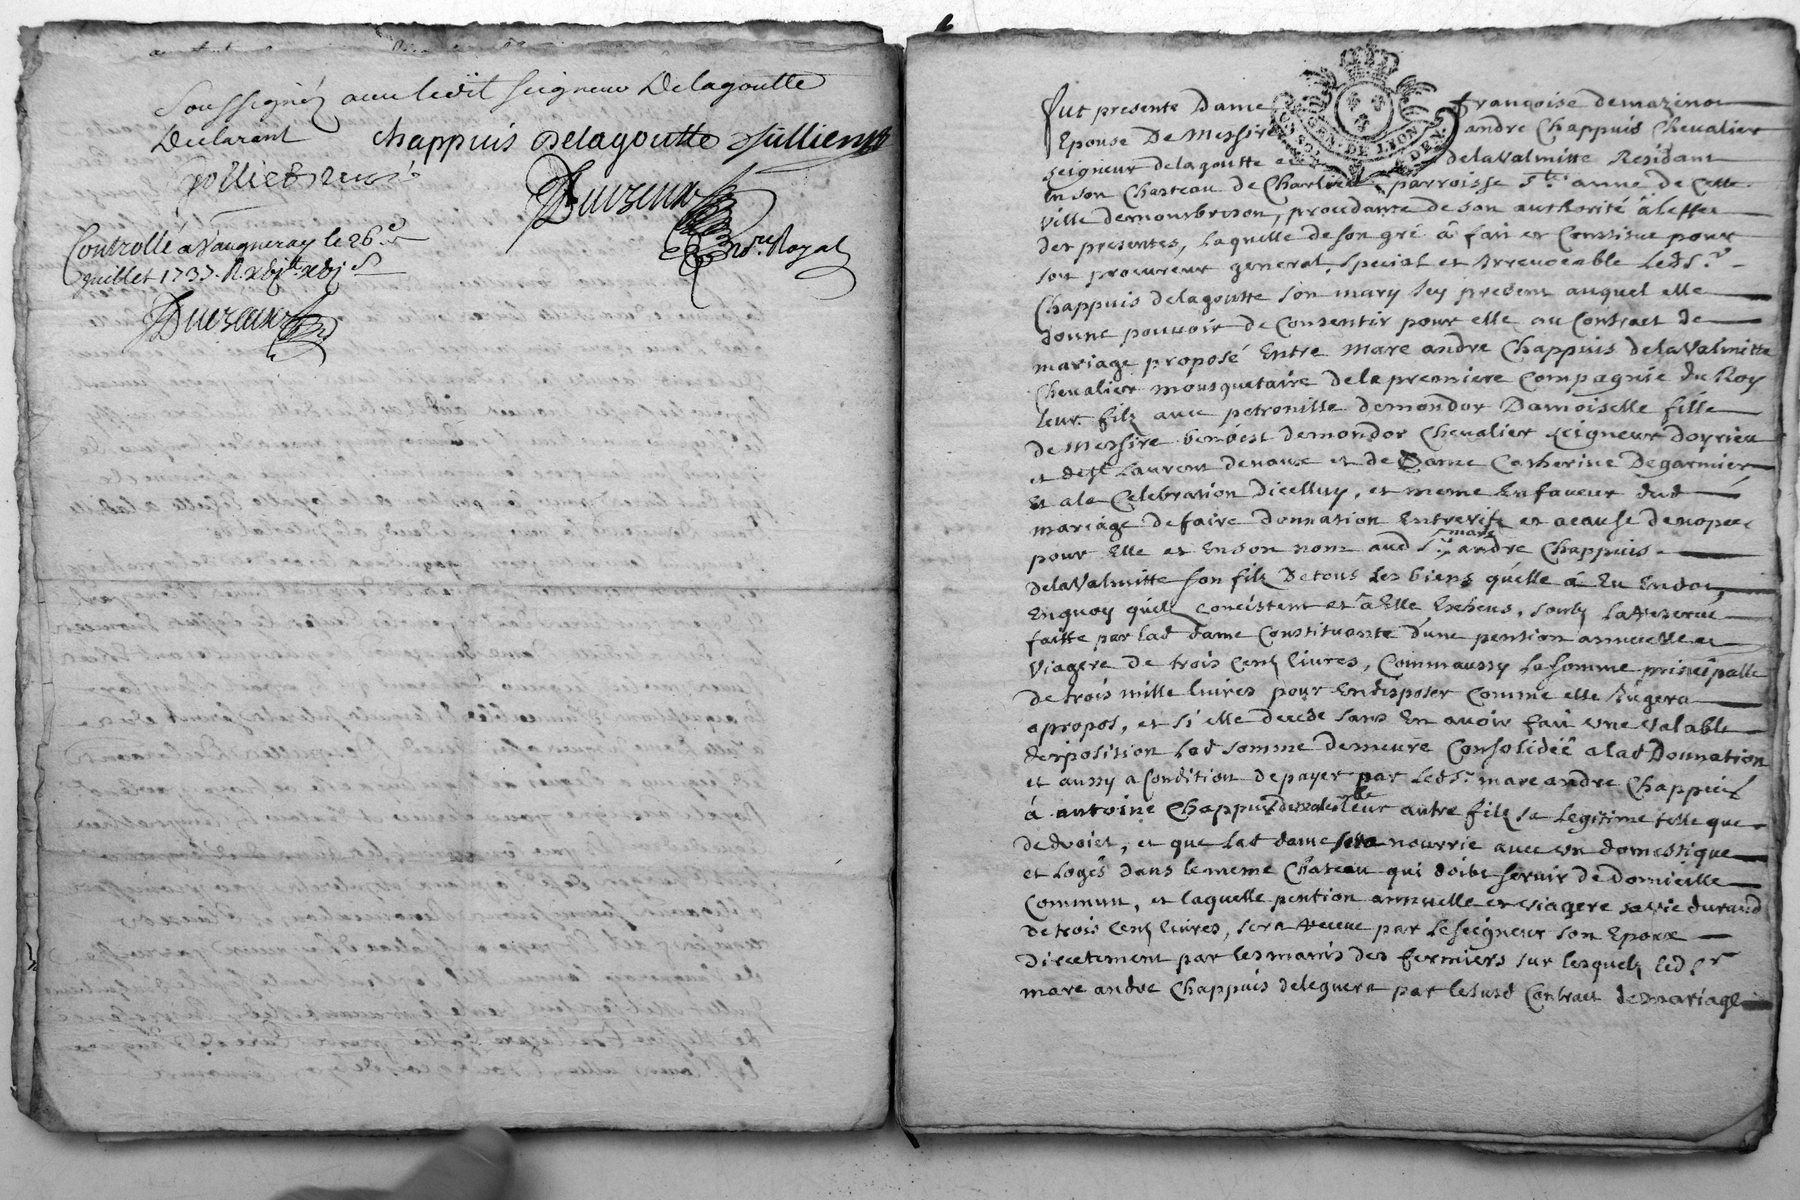 soussignéz avec ledit seigneur Delagoutte
Declarant
chappuis Delagoutte Jullien
Duvzeau
Nore. Royal
Controllé a Vaugneray le 26e
juillet 1737. R.
Duvzeau
GEN. DE LION
Fut presente Dame Françoise demazenod
Epouse De Messire andre Chappuis Chevalier
seigneur delagoutte et delaValmitte Residant
En son Chasteau de Charlieu parroisse Ste anne de Cette
ville demontbrison, proceddante de son authorité à leffet
des presentes, laquelle de son gré a fait et Constitue pour
son procureur general, special et Irrevocable Leds.r
Chappuis delagoutte son mary Icy present auquel elle
donne pouvoir de Consentir pour elle au Contract de
mariage proposé Entre Marc andre Chappuis delaValmitte
Chevalier mousquetaire dela premiere Compagnie du Roy
leur filz avec petronille demondor Damoiselle fille
de Messire benoist demondor Chevalier seigneur doyrieu
et de St Laurent devaux et de Dame Catherine Degarnier
Et ala Celebration Dicelluy, et meme En faveur dud
mariage defaire donnation Entrevifz et acause denopce
pour Elle et Enson nom aud Sr marc andre Chappuis
delaValmitte son filz De tous les biens quelle a Eu Endot,
Enquoy quilz concistent et a Elle Excheus, soubz la Reserve
faitte par lad dame Constituante d'une pention annuelle et
Viagere de trois Centz livres, Commaussy la somme principalle
de trois mille livres pour Endisposer Comme elle Jugera
apropos, et si elle decede sans En avoir fait une valable
disposition lad somme demeure Consolidée a lad Donnation
et aussy a Condition de payer par Leds.r marc andre Chappuis
à antoine Chappuis leur autre filz sa legitime telle que
de droict, et que lad dame sera nourrie avec un domestique
et Logés dans le meme Chateau qui doibt servir de Domicille
Commun, et laquelle pention annuelle et viagere sa vie durand
de trois Centz livres, sera Receue par le seigneur son Epoux
Directement par les mains des fermiers sur lesquelz led sr
marc andre Chappuis deleguera par le susd Contract de mariage